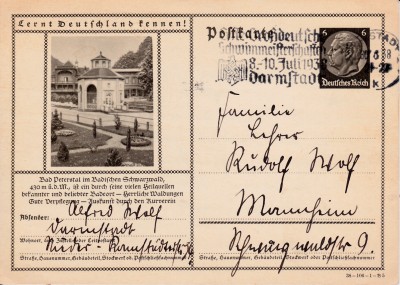 Lernt Deutschland kennen!
Postkarte
Schwimmeisterschaften
8.-10. Juli 1938
Darmstadt
6 6
Deutsches Reich
Familie
Lehrer
Rudolf Wolf
Mannheim
Bad Peterstal im Badischen Schwarzwald,
430 m ü.d.M., ist ein durch seine vielen Heilquellen
bekannter und beliebter Badeort — Herrliche Waldungen
Gute Verpflegung — Auskunft durch den Kurverein
Absender: Alfred Wolf
Darmstadt
Wohnort, auch Zustell- oder Leitpostamt
Nieder-Ramstädterstr.
Straße, Hausnummer, Gebäudeteil, Stockwerk od. Postschließfachnummer
Schwarzwaldstr. 9.
Straße, Hausnummer, Gebäudeteil, Stockwerk oder Postschließfachnummer